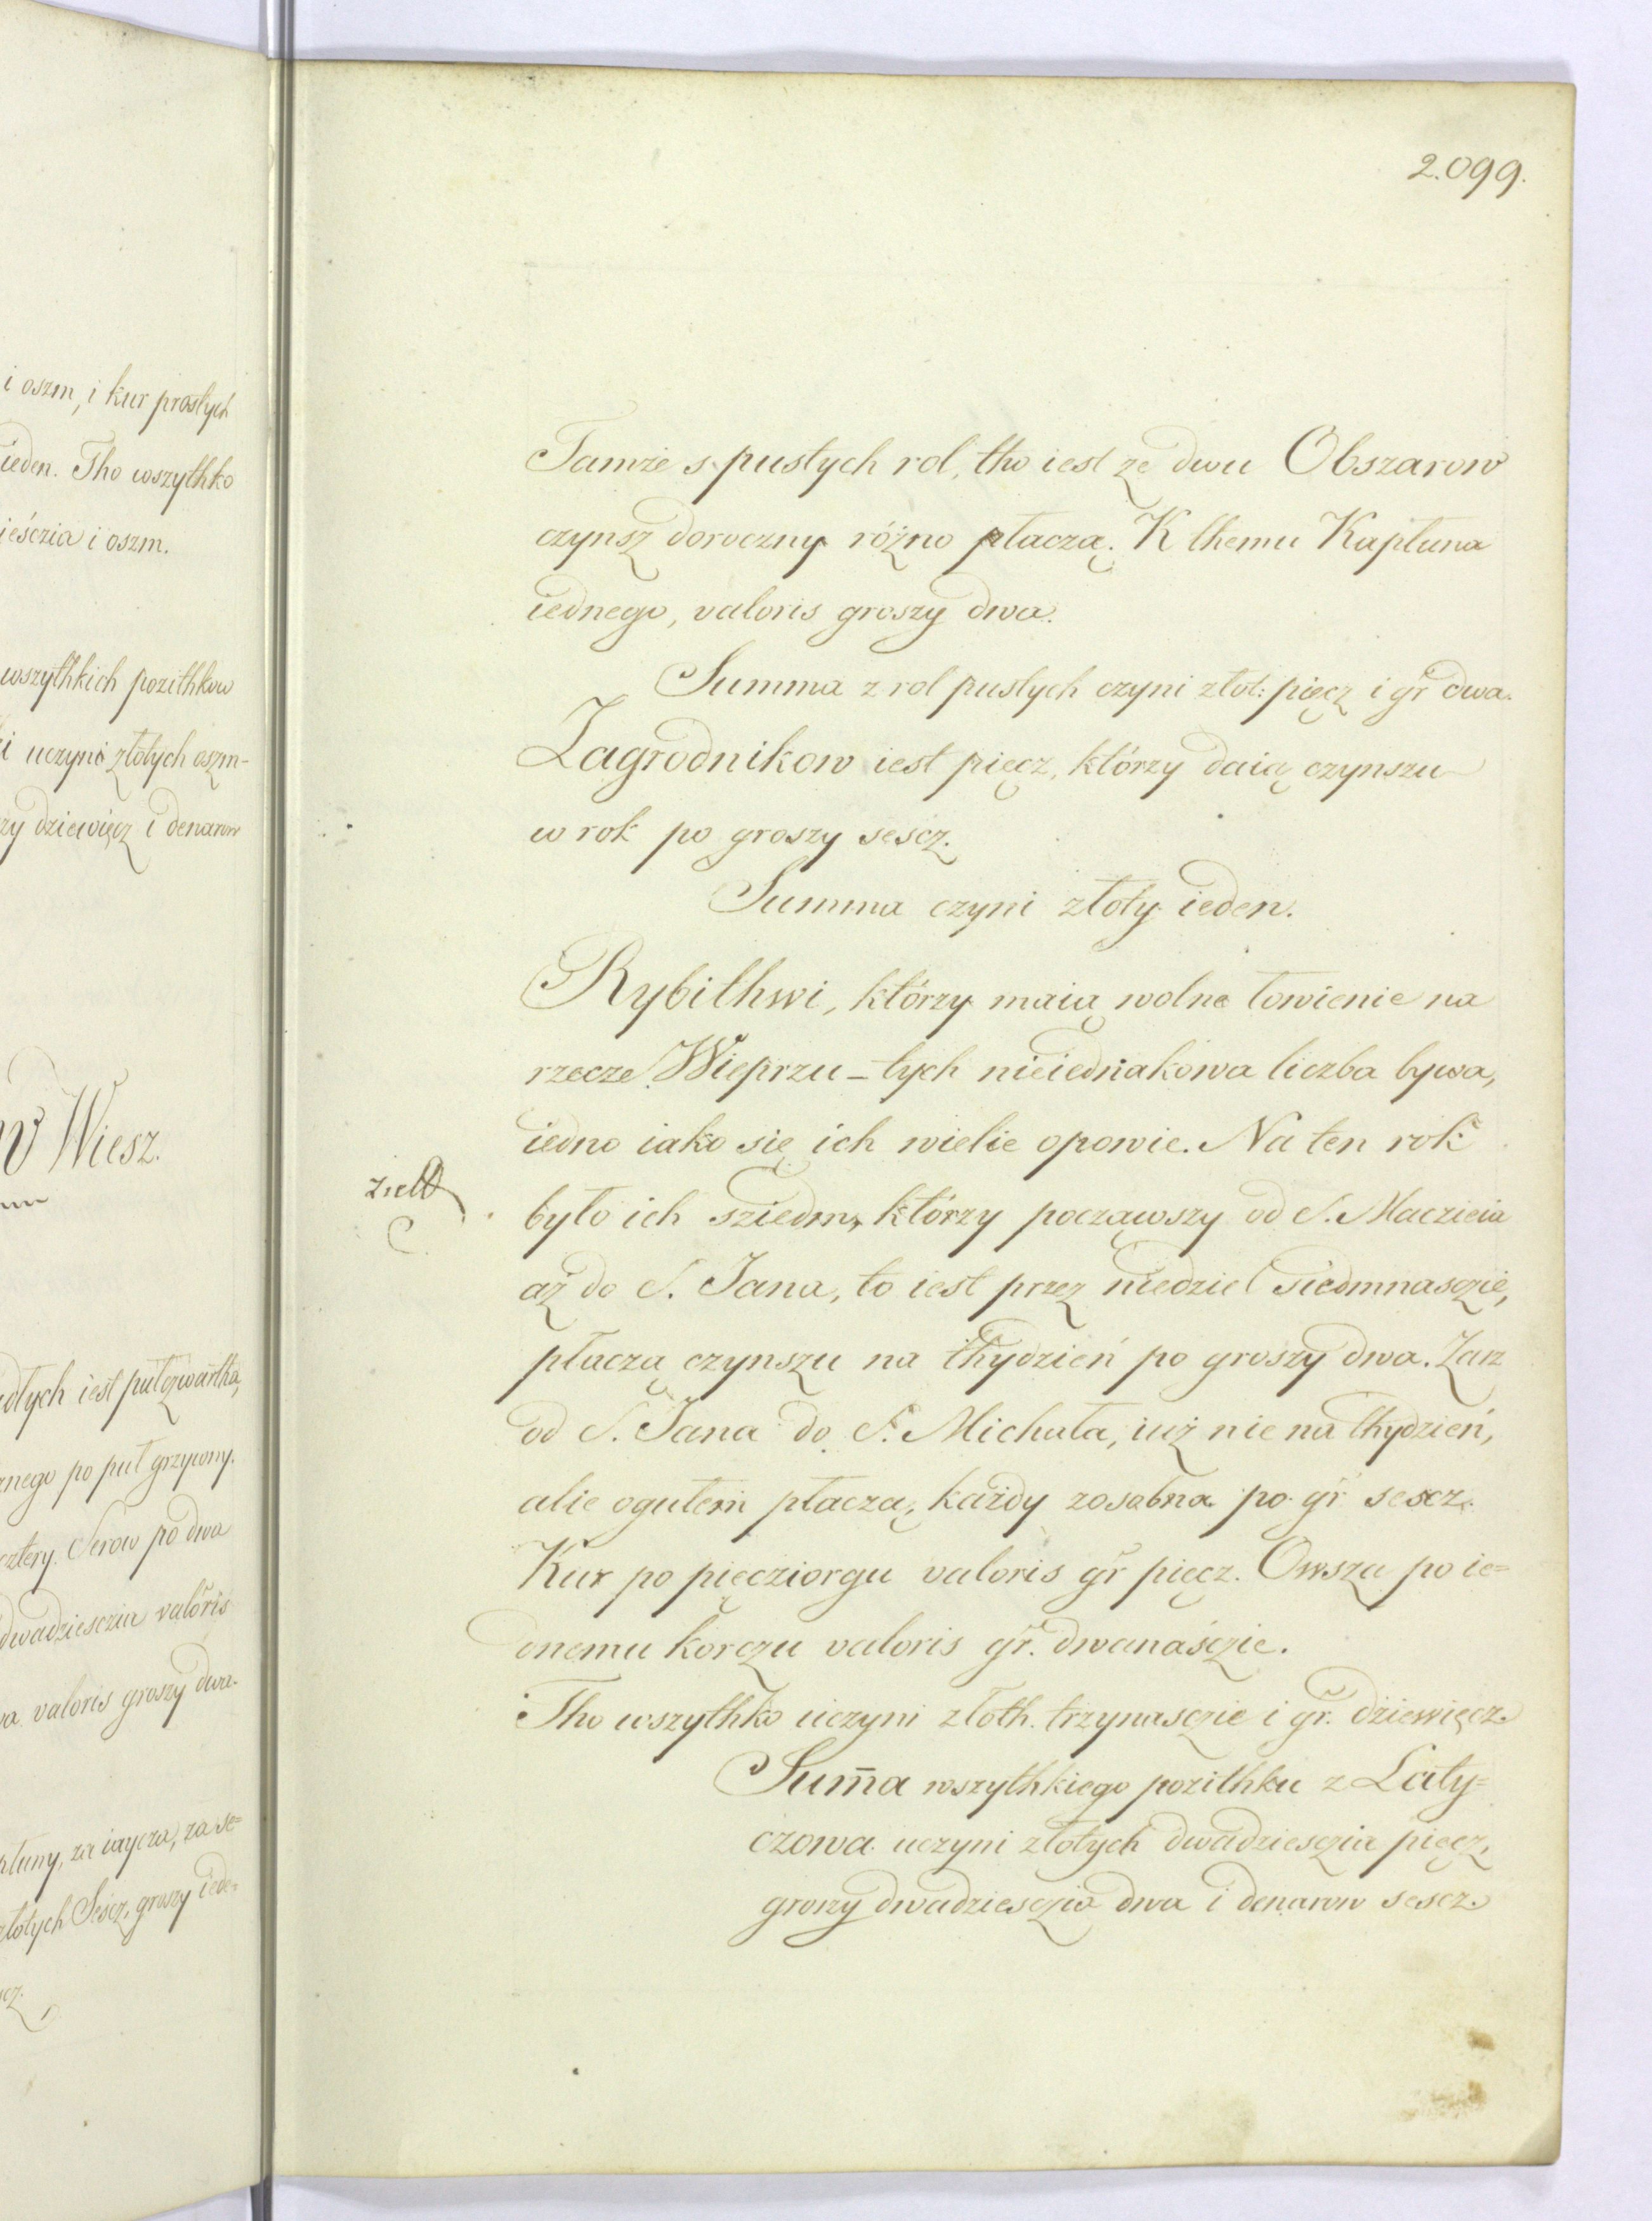 i oszm, i kur prostych
ieden. Tho wszythko
ieśczia i oszm.
wszythkich pozithkow
i uczyni złotych oszm-
zy dziewięcz i denarow
Wiesz.
iest pułczwartha,
nego po puł grzywny.
cztery. Serow po dwa
dwadziesczia valoris
valoris groszy dwa.
za iaycza, za se=
złotych Sescz, groszy iede=
2.099.
Tamże s pustych rol, tho iest ze dwu Obszarow
czynsz doroczny różno płaczą. K themu Kapłuna
iednego, valoris groszy dwa.
Summa z rol pustych czyni złot: pięcz i gr dwa.
Zagrodnikow iest pięcz, którzy daią czynszu
w rok po groszy sescz.
Summa czyni złoty ieden.
Rybithwi, którzy maią wolne łowienie na
rzecze Wieprzu – tych nieiednakowa liczba bywa,
iedno iako się ich wielie opowie. Na ten rok
było ich sziedm, którzy począwszy od S. Maczieia
aż do S. Jana, to iest przez niedziel siedmnasczie,
płaczą czynszu na thydzień po groszy dwa. Zaz
od S. Jana do S. Michała, iuż nie na thydzień,
alie ogułem płaczą, każdy zosobna po gr sescz.
Kur po pięcziorgu valoris gr pięcz. Owsza po ie=
dnemu korczu valoris gr. dwanaśczie.
Tho wszythko uczyni złoth. trzynasczie i gr. dziewięcz.
Sum̄a wszythkiego pozithku z Laty=
czowa uczyni złotych dwadziesczia pięcz,
groszy dwadziesczia dwa i denarow sescz.